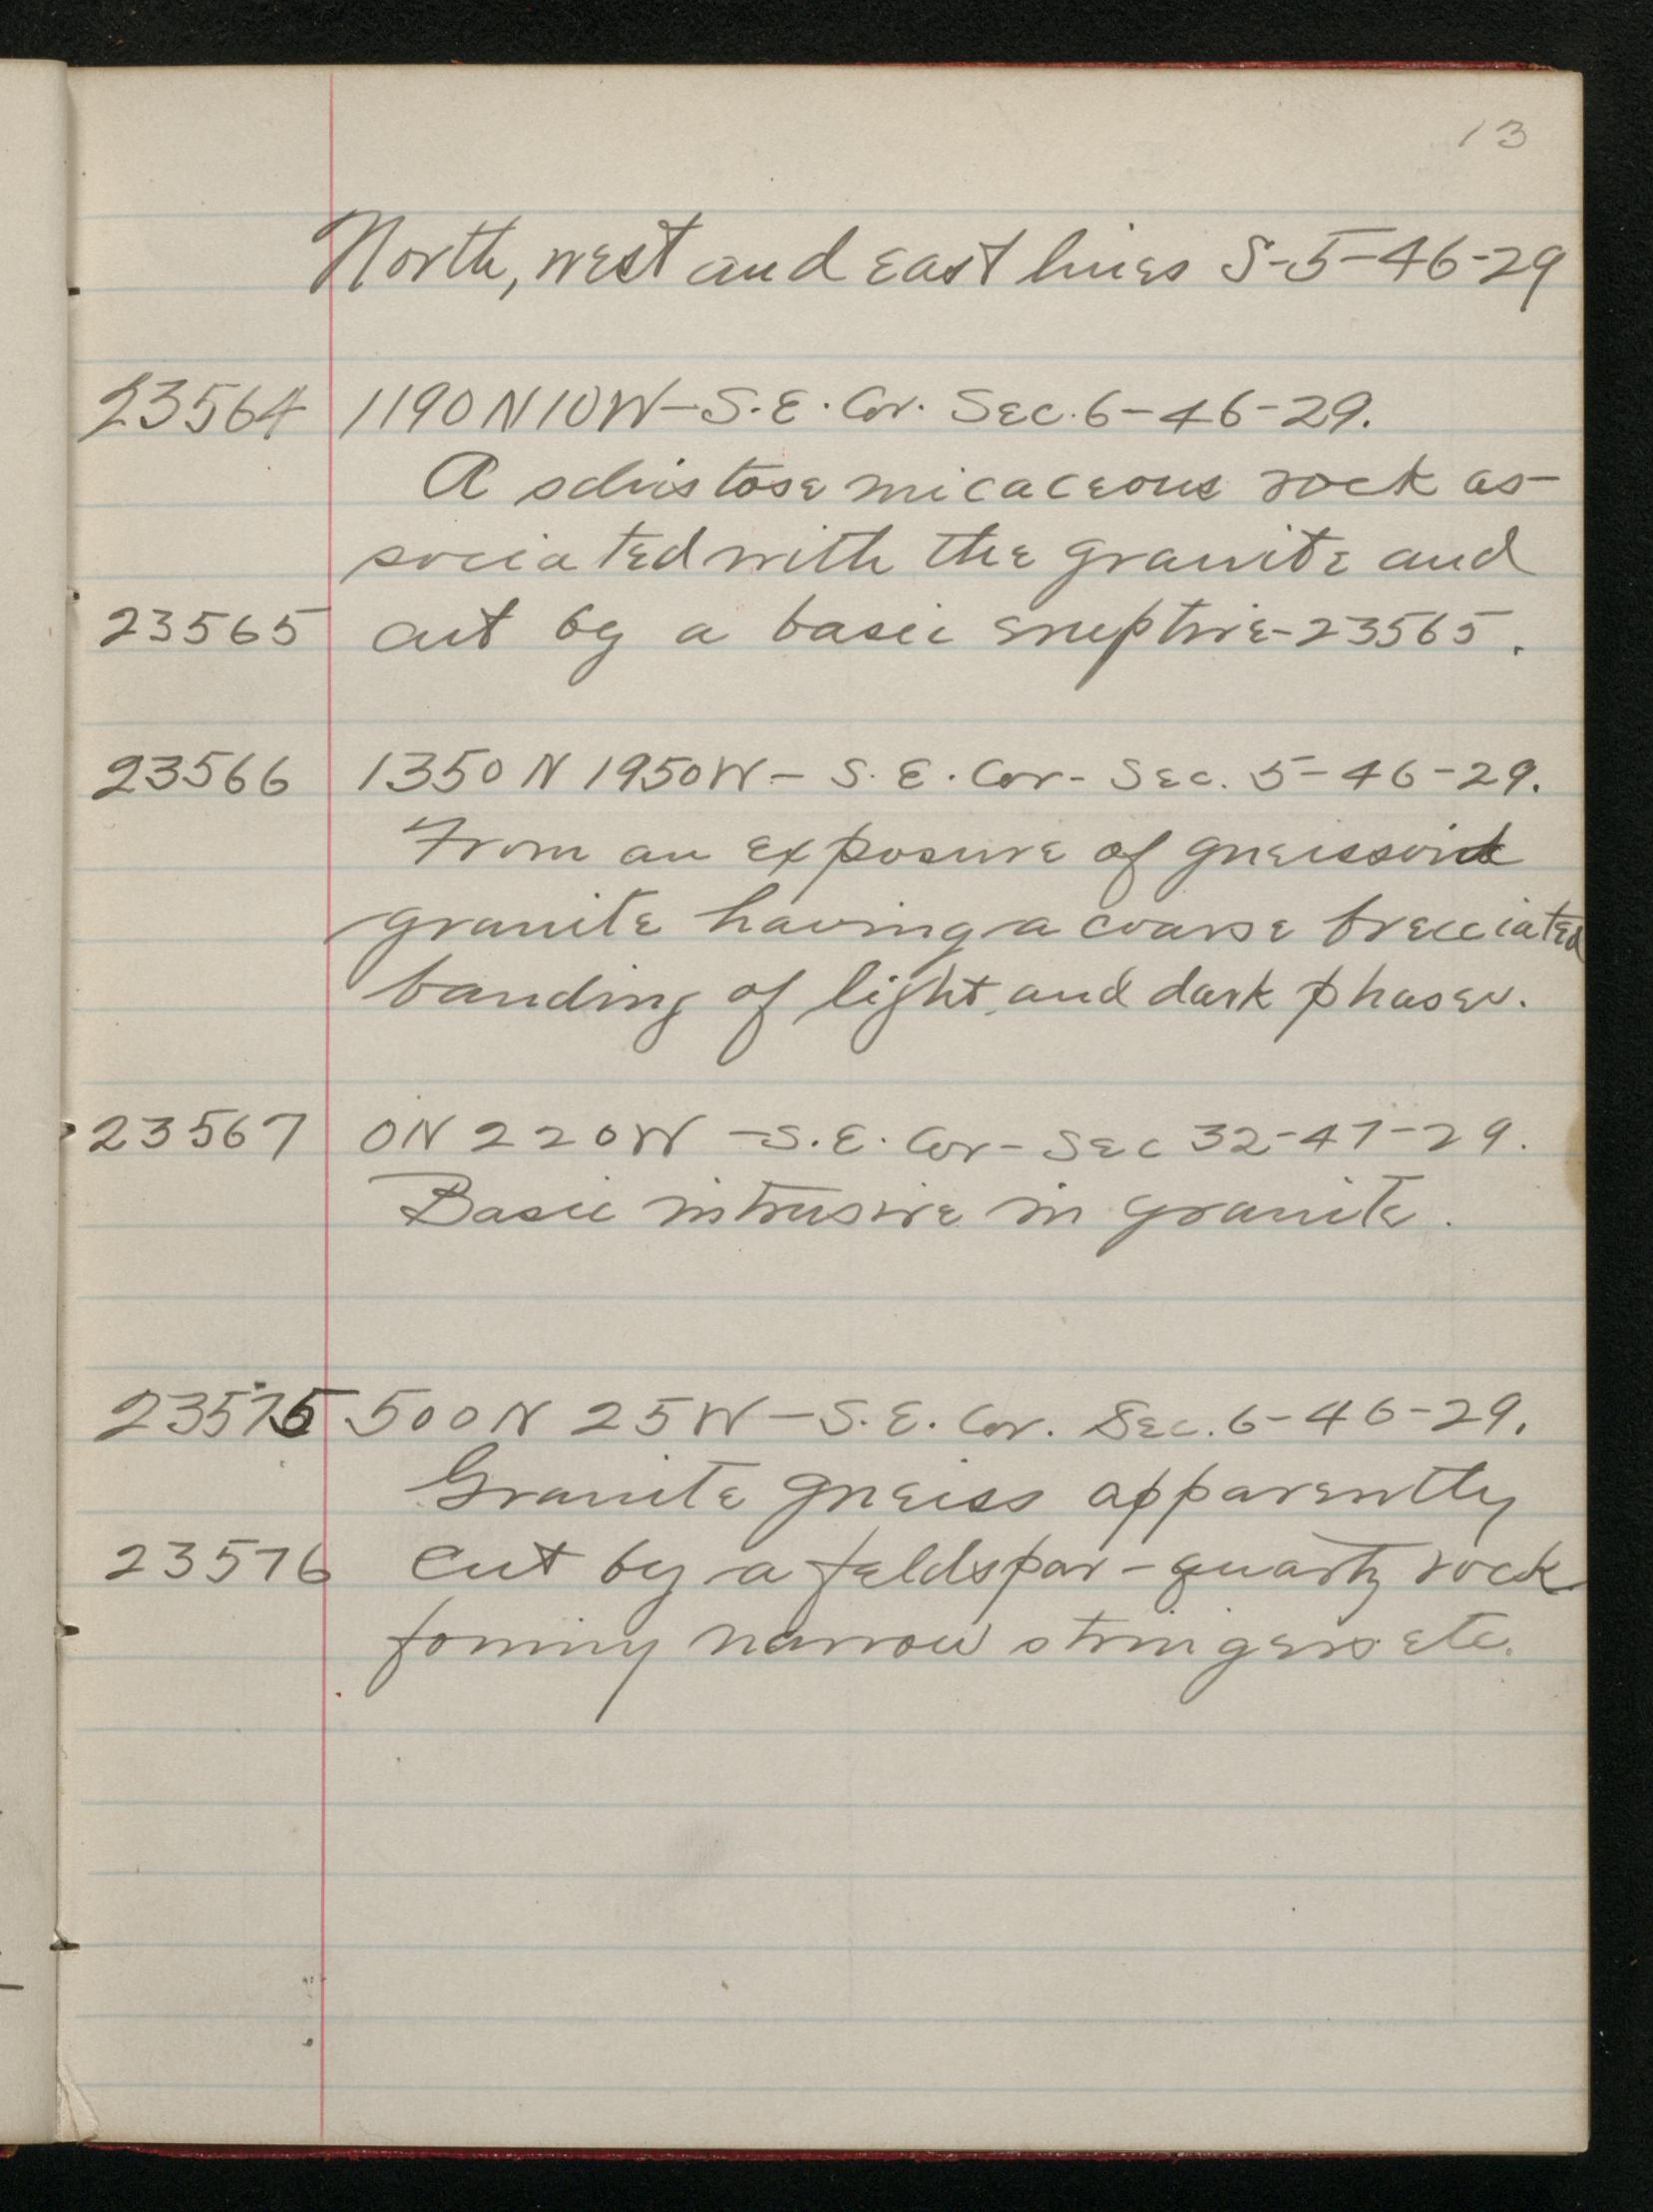 13
North, west and east lines S-5-46-29
23564 1190 N 10 W - S.E. Cor. Sec. 6-46-29.
A schistose micaceous rock as-
sociated with the granite and
23565 cut by a basic eruptive - 23565.
23566 1350 N 1950 W - S.E. Cor - Sec. 5-46-29.
From an exposure of gneissoid
granite having a coarse brecciated
banding of light and dark phases.
23567 0 N 220 W - S.E. Cor - Sec 32-47-29.
Basic intrusive in granite.
23575 500 N 25 W - S.E. Cor. Sec. 6-46-29.
Granite gneiss apparently
23576 cut by a feldspar-quartz rock
forming narrow stringers etc.